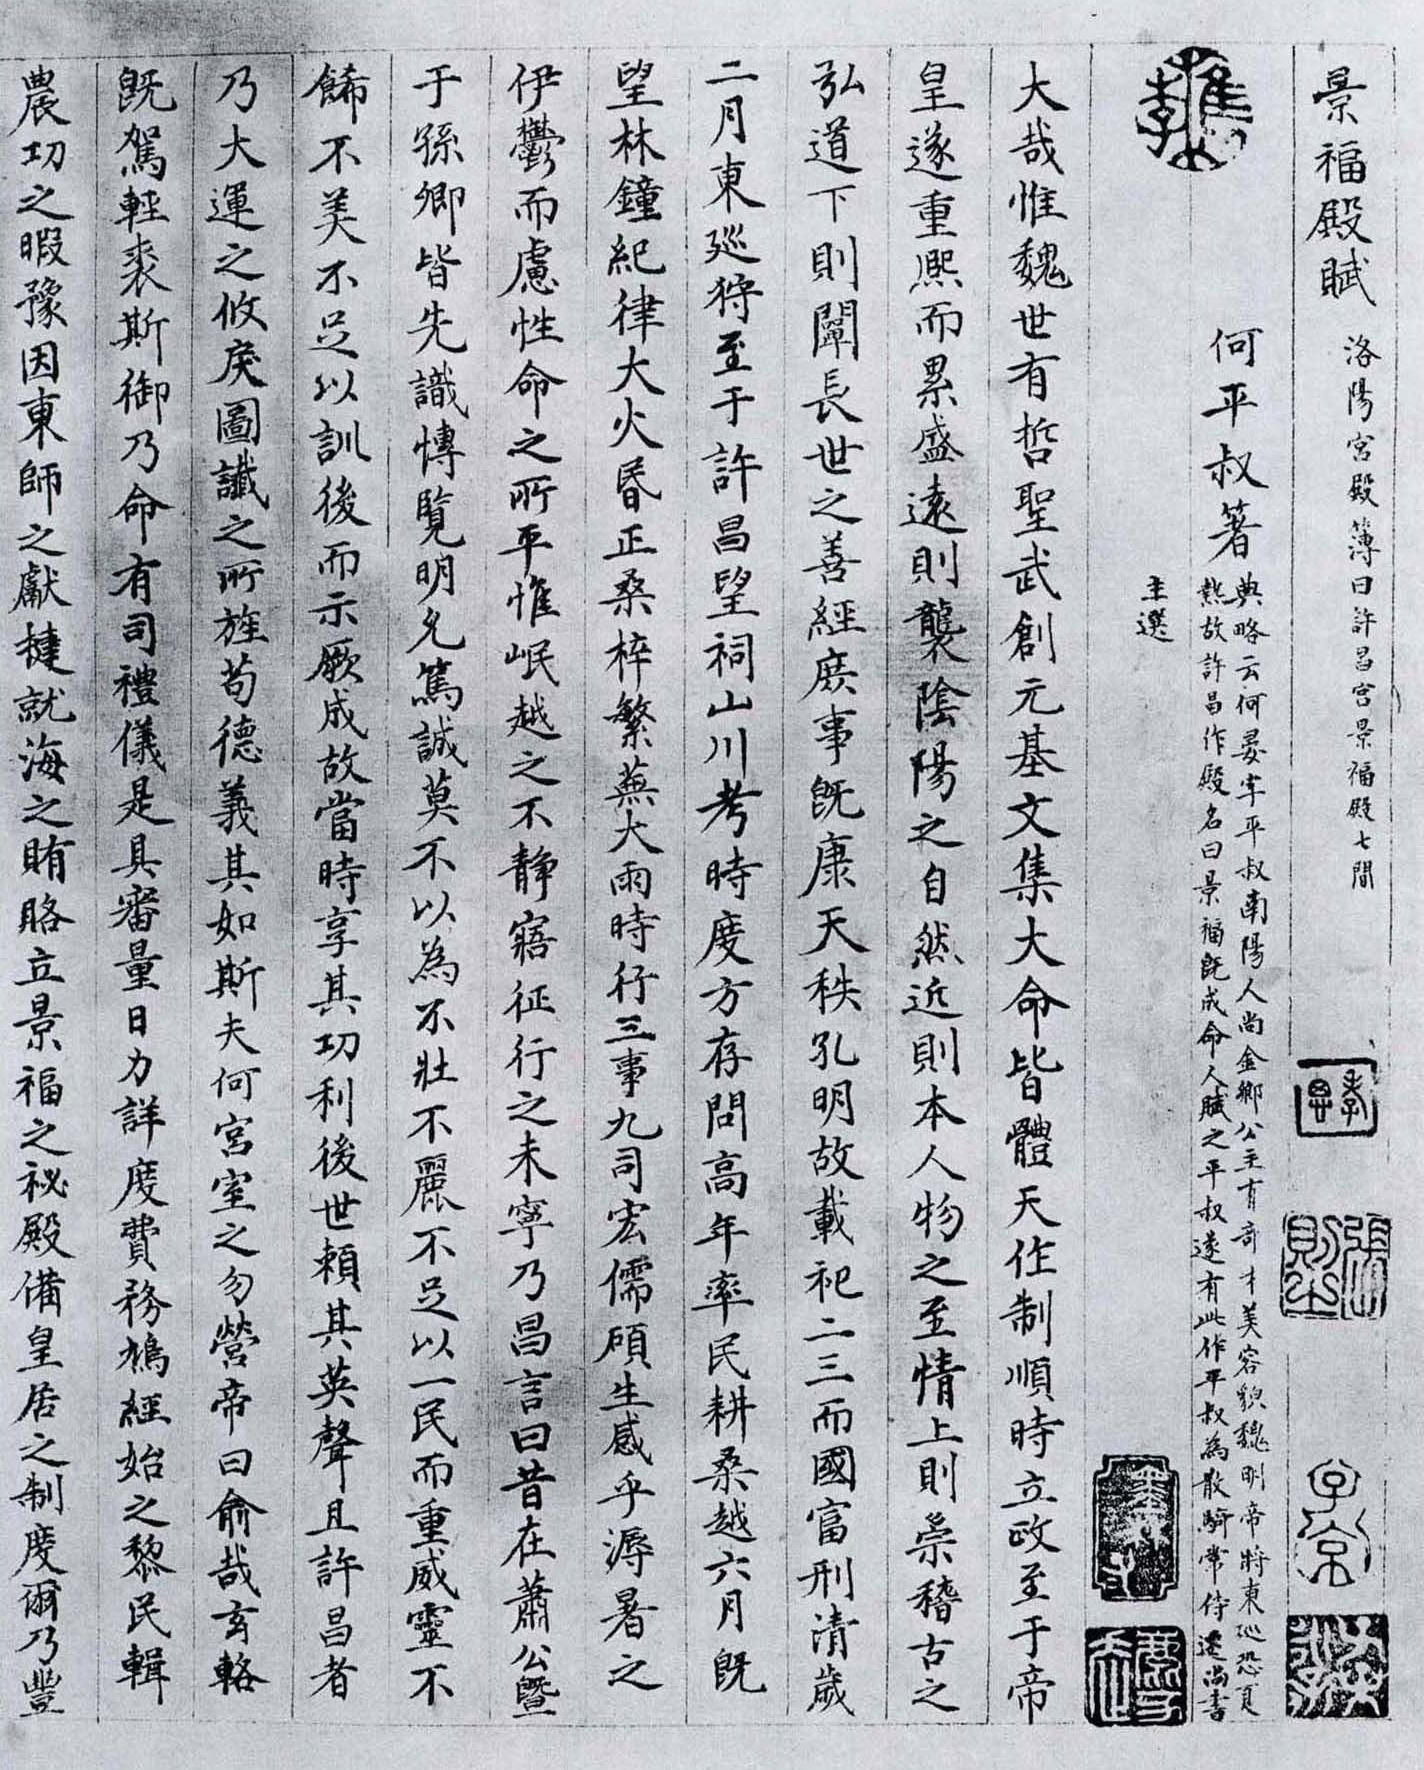 景福殿賦 洛陽宮殿簿曰許昌宮景福殿七間
何平叔著 典略云何晏字平叔南陽人尚金鄉公主有奇才美容貌魏明帝將東巡恐夏
熱故許昌作殿名曰景福既成命人賦之平叔遂有此作平叔為散騎常侍遷尚書
主選
大哉惟魏世有哲聖武創元基文集大命皆體天作制順時立政至于帝
皇遂重熙而累盛遠則襲陰陽之自然近則本人物之至情上則崇稽古之
弘道下則闡長世之善經庶事既康天秩孔明故載祀二三而國富刑清歲
二月東巡狩至于許昌望祠山川考時度方存問高年率民耕桑越六月既
望林鐘紀律大火昏正桑梓繁蕪大雨時行三事九司宏儒碩生感乎溽暑之
伊鬱而慮性命之所平惟岷越之不靜寤征行之未寧乃昌言曰昔在蕭公暨
于孫卿皆先識博覽明允篤誠莫不以為不壯不麗不足以一民而重威靈不
餝不美不足以訓後而示厥成故當時享其功利後世賴其英聲且許昌者
乃大運之攸戾圖讖之所旌苟德義其如斯夫何宮室之勿營帝曰俞哉玄輅
既駕輕裘斯御乃命有司禮儀是具審量日力詳度費務鳩經始之黎民輯
農功之暇豫因東師之獻捷就海之賄賂立景福之祕殿備皇居之制度爾乃豐